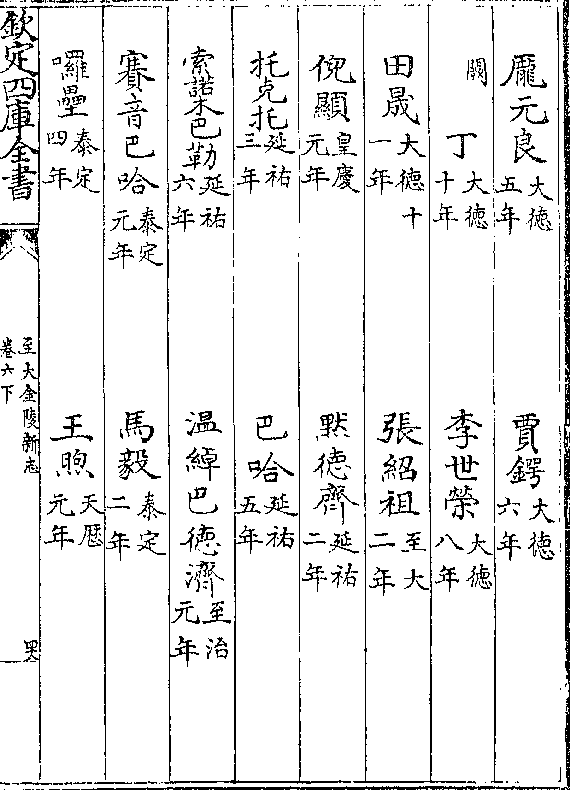 龎元良大德五年　賈鍔大德六年
闕　丁大德十年　李世榮大德八年
田晟大德十一年　張紹祖至大二年
倪顯皇慶元年　黙德齊延祐二年
托克托延祐三年　巴哈延祐五年
索諾木巴勒延祐六年　温綽巴德濟至治元年
賽音巴哈泰定元年　馬毅泰定二年
囉壘泰定四年　王煦天歴元年
欽定四庫全書
至大金陵新志
卷六下